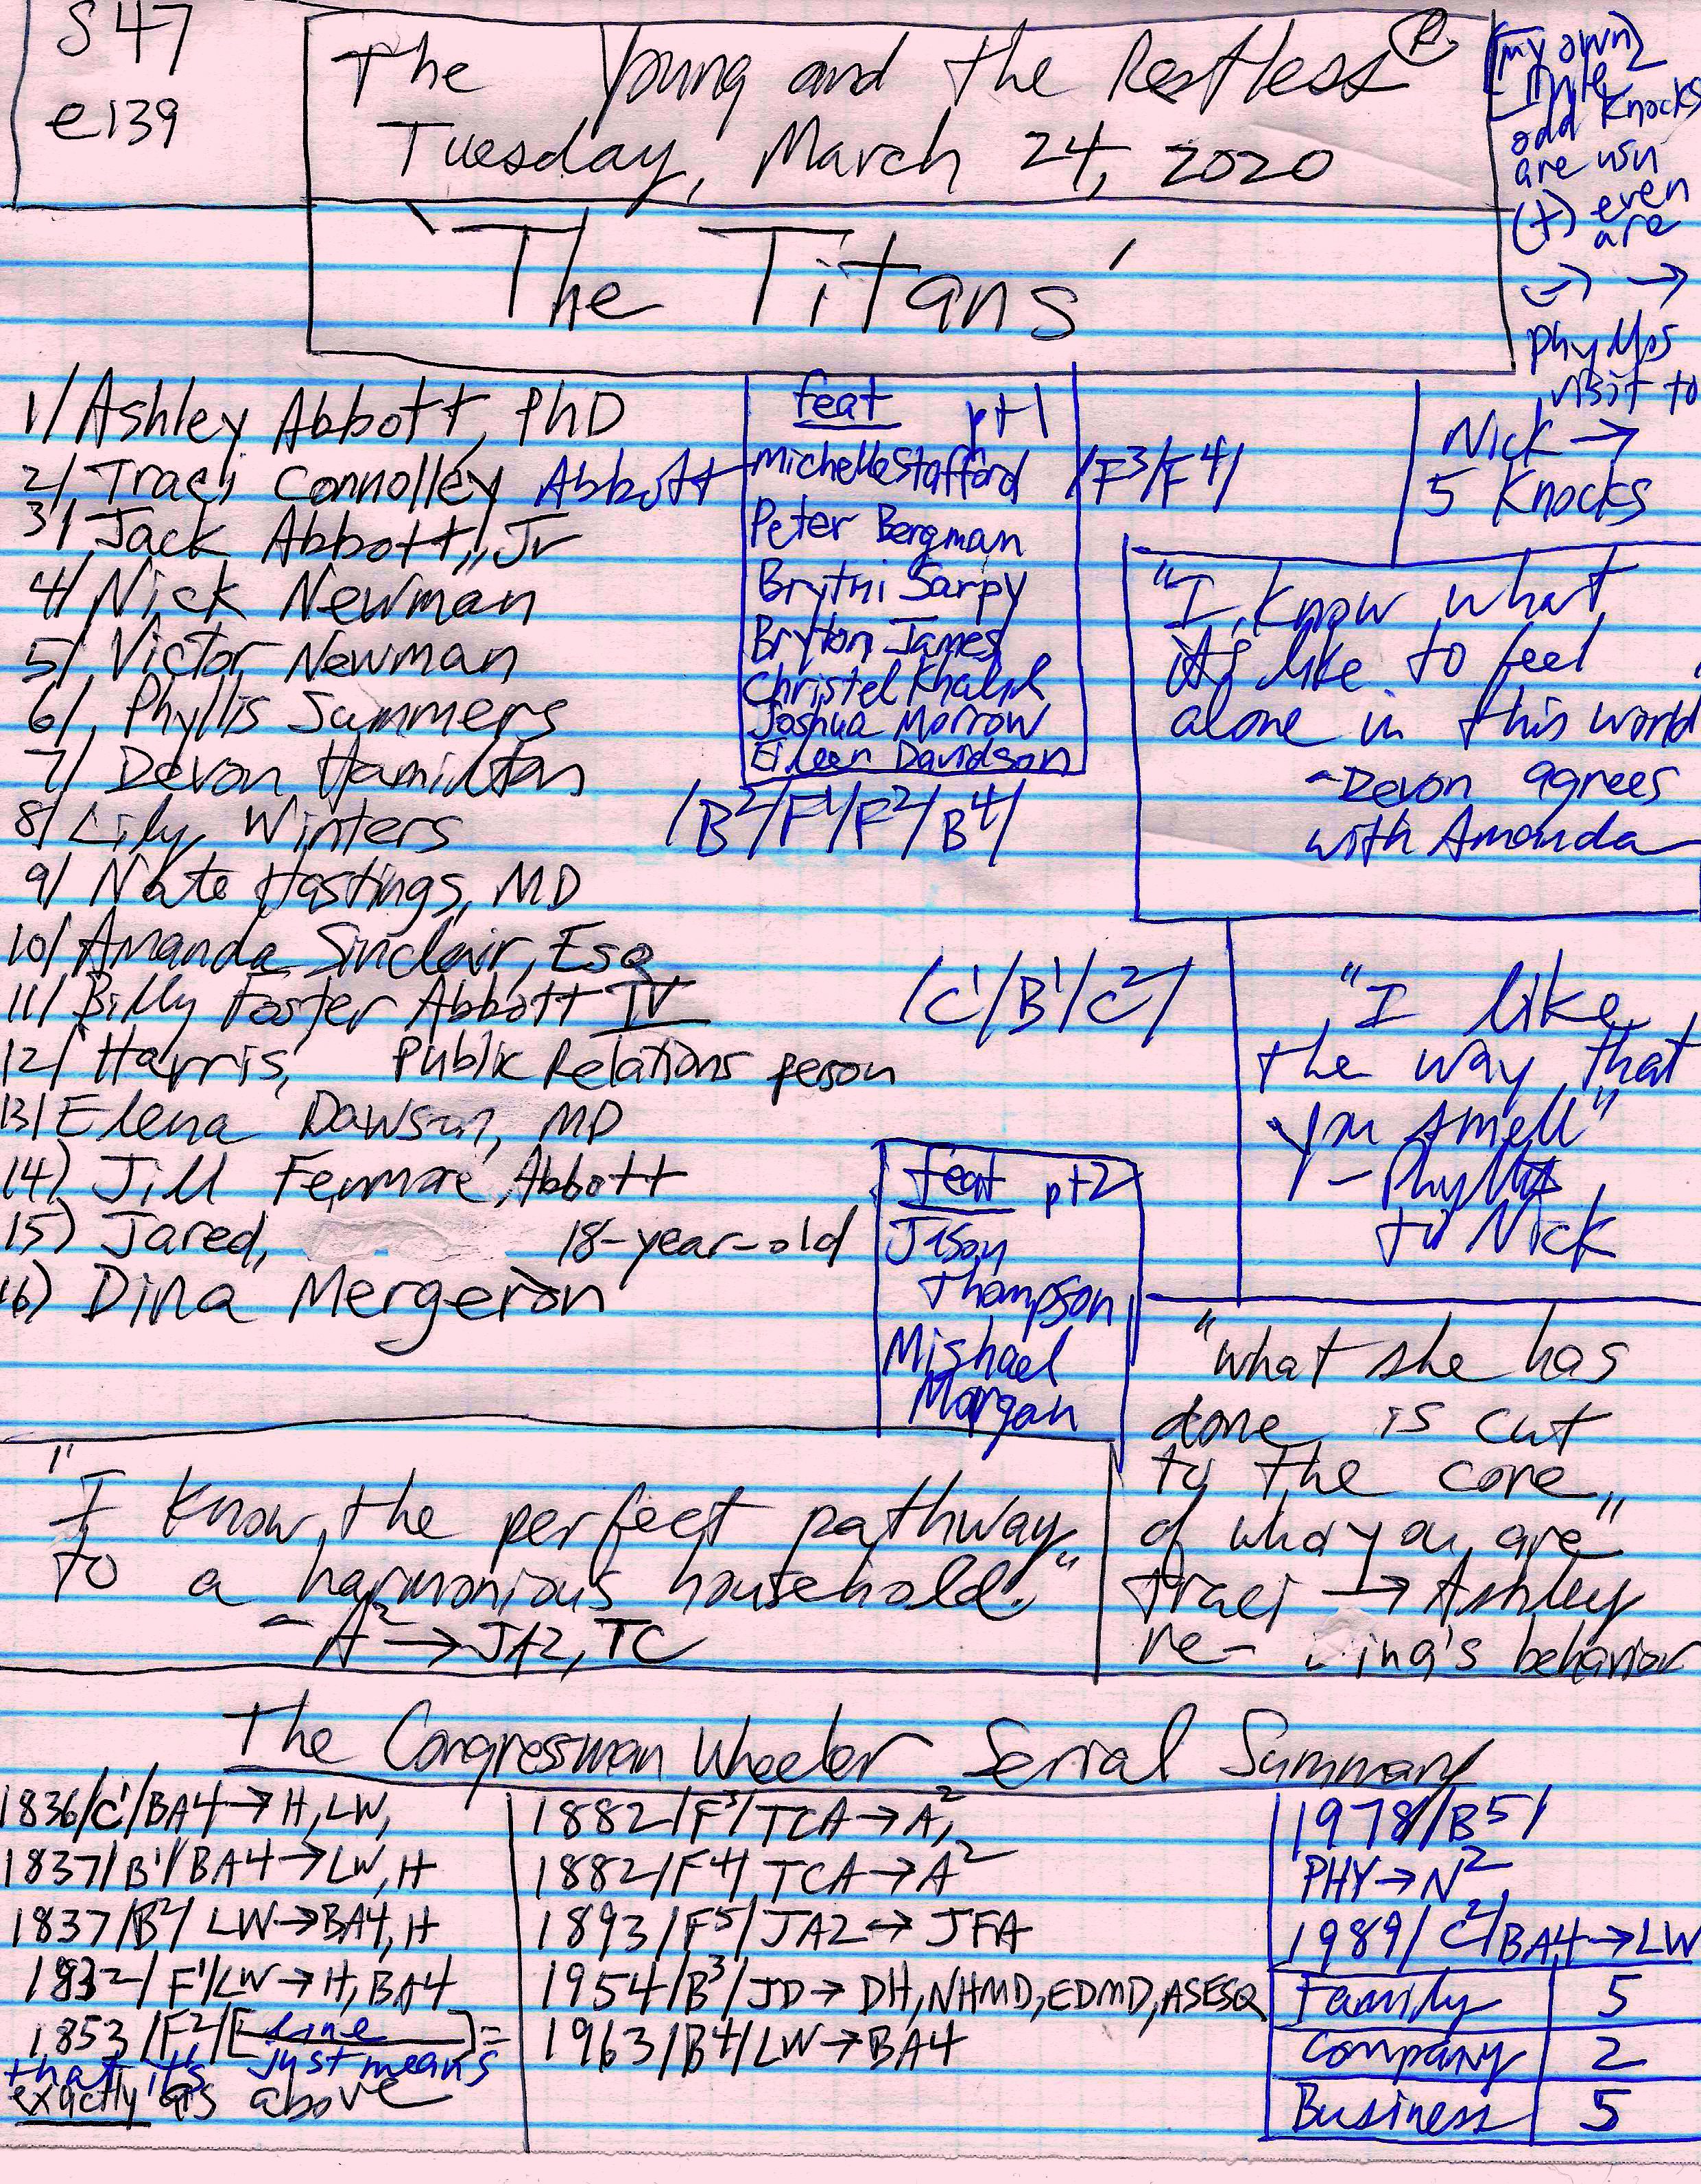 S47
e139
The Young and the Restless®
Tuesday, March 24, 2020
'The Titans'
(my own)
odd Knocks
are usu
(+) even
are
(-) →
phyllis
visit to
Nick →
5 Knocks
1/ Ashley Abbott, PhD
2/ Traci Connolley Abbott
3/ Jack Abbott, Jr
4/ Nick Newman
5/ Victor Newman
6/ Phyllis Summers
7/ Devon Hamilton
8/ Lily Winters
9/ Nate Hastings, MD
10/ Amanda Sinclair, Esq
11/ Billy Foster Abbott IV
12/ Harris, Public Relations person
13/ Elena Dawson, MD
14) Jill Fenmore Abbott
15) Jared, 18-year-old
16) Dina Mergeron
feat pt1
Michelle Stafford
Peter Bergman
Brytni Sarpy
Bryton James
Christel Khalil
Joshua Morrow
Eileen Davidson
/F³/F⁴/
/B²/F¹/F²/B⁴/
"I know what
it's like to feel
alone in this world
-Devon agrees
with Amanda
/C¹/B¹/C²/
"I like
the way that
you smell"
- Phyllis
to Nick
feat pt2
Jason
Thompson
Mishael
Morgan
"what she has
done is cut
to the core
of who you are"
Traci → Ashley
re- behavior
"I know the perfect pathway
to a harmonious household."
- A² → JA2, TC
The Congressman Wheeler Serial Summary
1836/C¹/BA4 → H, LW,
1837/B¹/BA4 → LW, H
1837/B²/ LW → BA4, H
1832/ F¹/LW → H, BA4
1853/F²/[line]=
that just means
it's
exactly as above
1882/F³/TCA → A²,
1882/F⁴/ TCA → A²
1893/F⁵/ JA2 ↔ JFA
1954/B³/JD → DH, NHMD, EDMD, ASESQ
1963/B⁴/LW → BA4
1978/B⁵/
PHY → N²
1989/ C²/BA4 → LW
Family 5
Company 2
Business 5